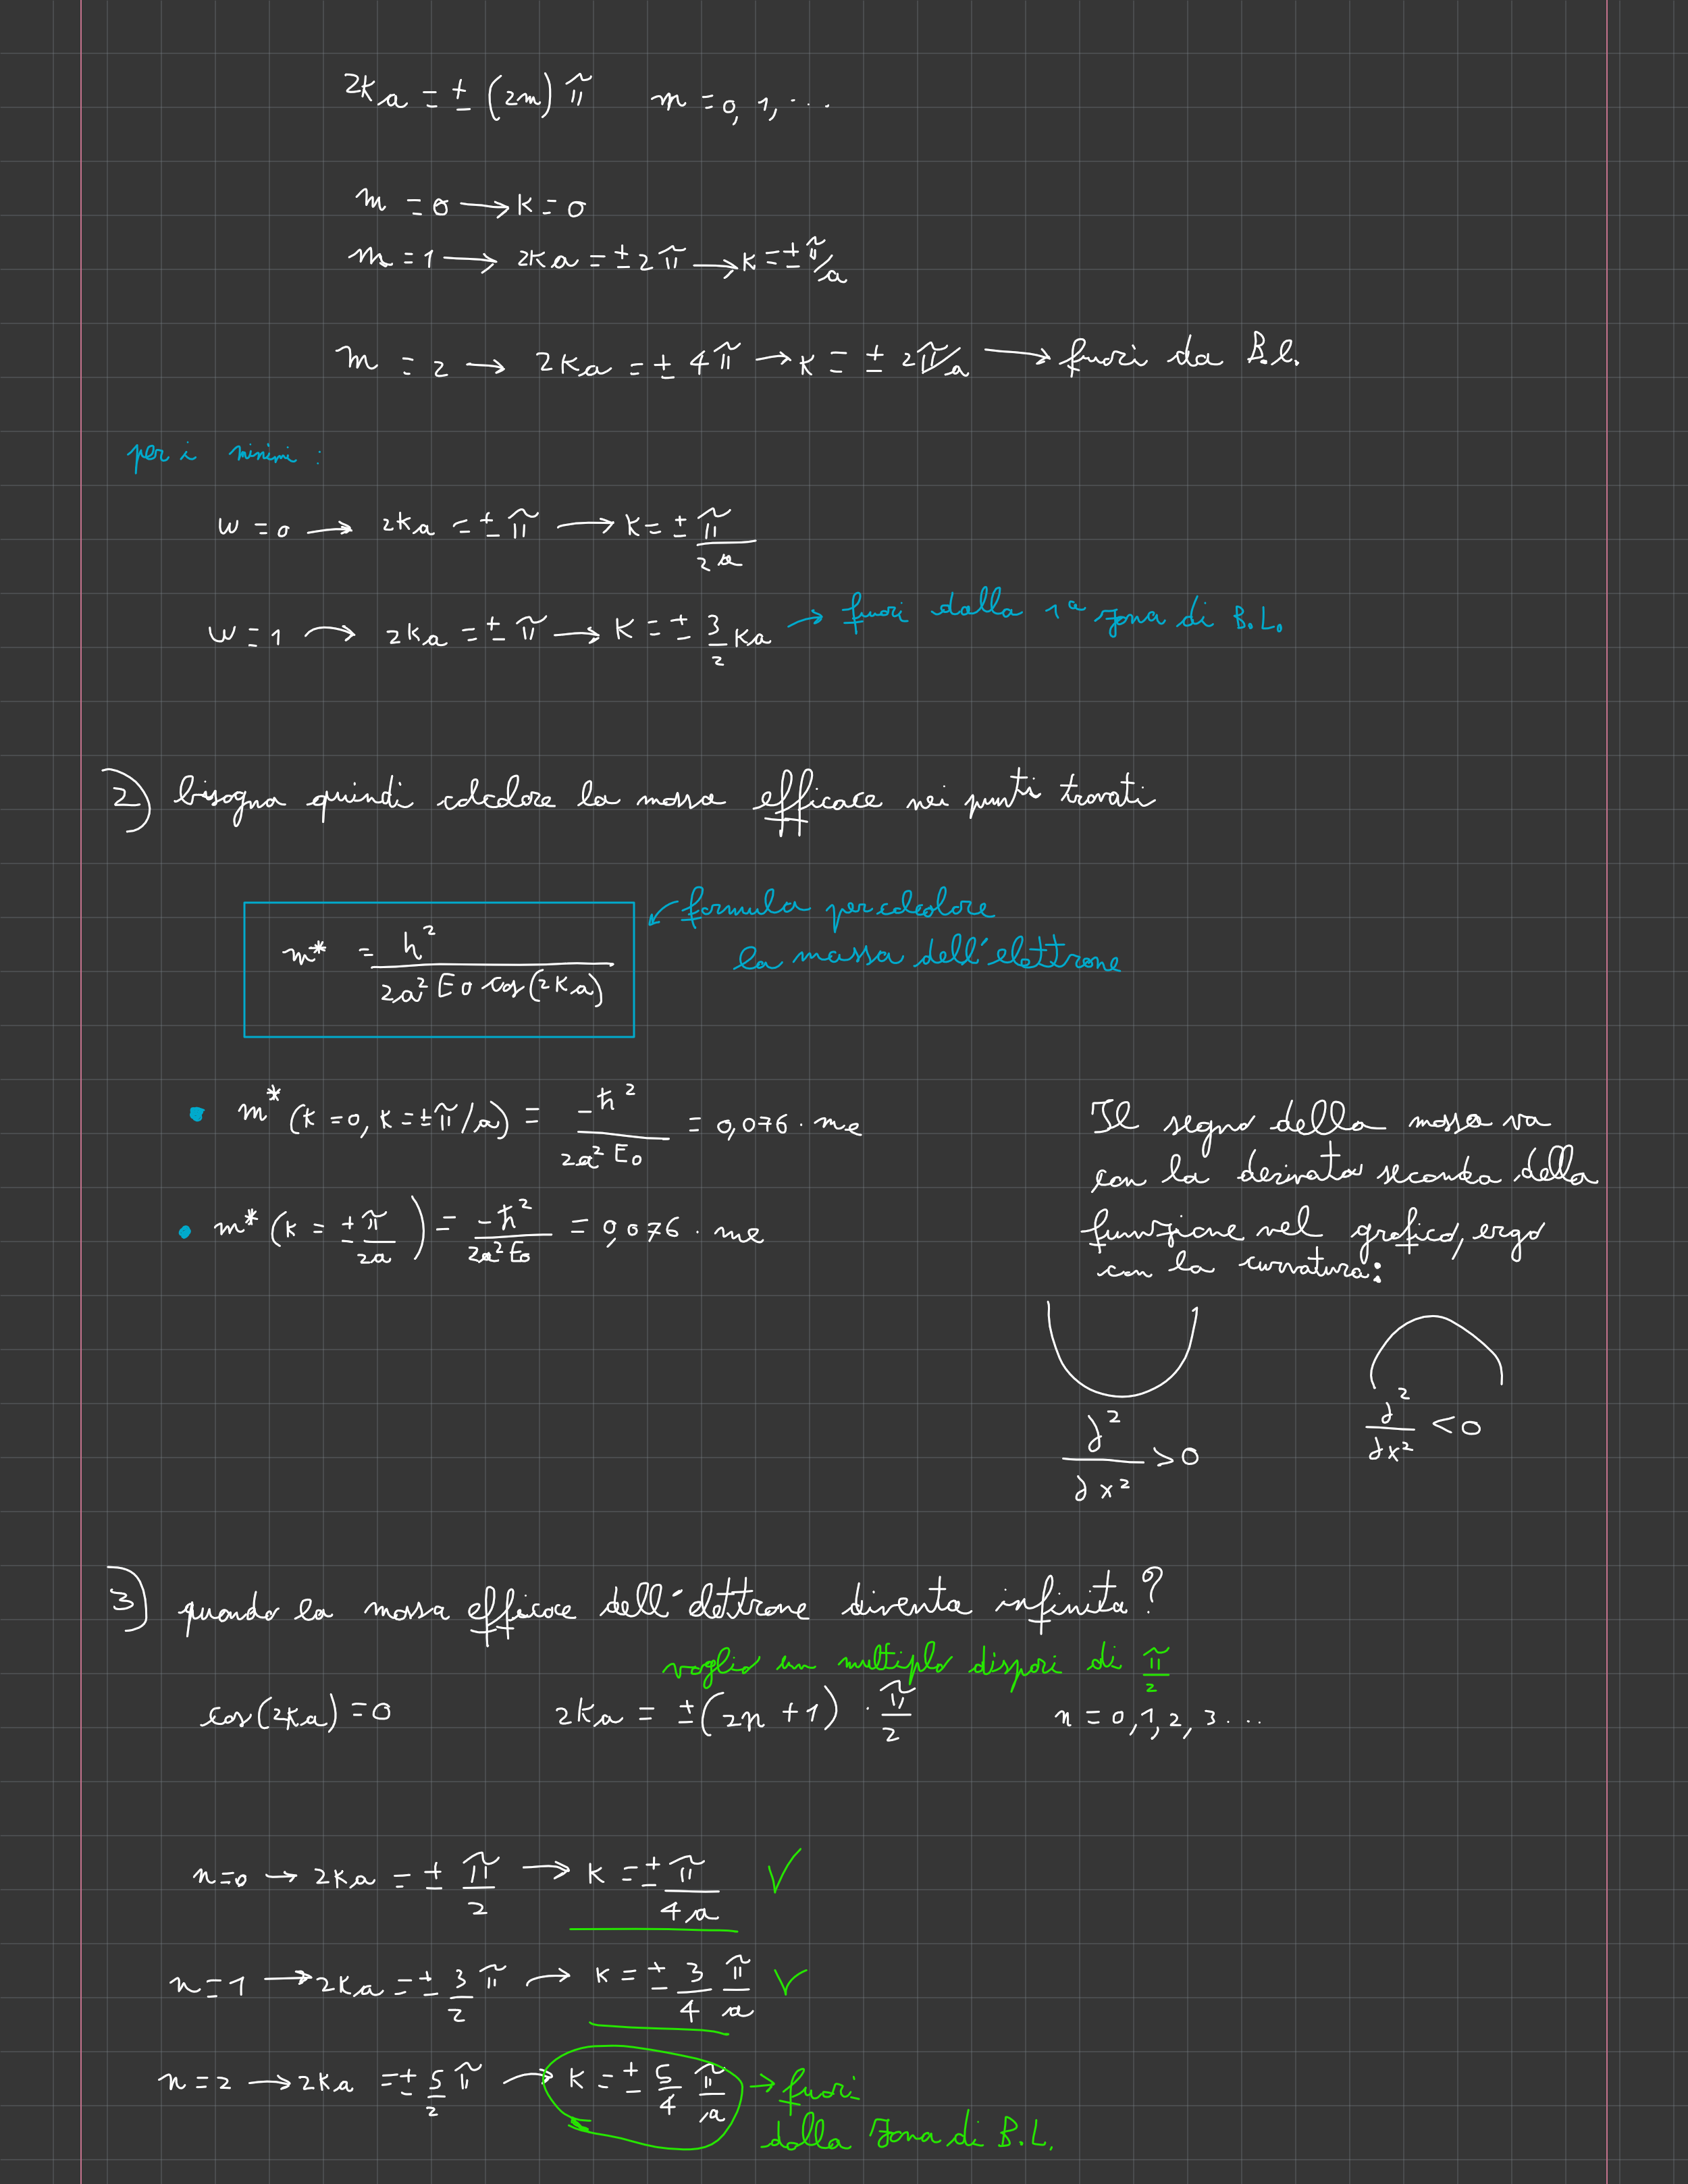 2Ka = ± (2m) π m = 0, 1, ...
m = 0 → K = 0
m = 1 → 2Ka = ± 2π → K = ± π/a
m = 2 → 2Ka = ± 4π → K = ± 2π/a → fuori da B.l.
per i minimi :
w = 0 → 2Ka = ± π → K = ± π/2a
w = 1 → 2Ka = ± π → K = ± 3/2 Ka → fuori dalla 1ª zona di B.L.
2) bisogna quindi calcolare la massa efficace nei punti trovati
← formula per calcolare
la massa dell'elettrone
m* = h²/2a² E0 cos(2Ka)
• m* (K = 0, K = ± π/a) = -ħ²/2a² E0 = 0,076 · me
• m* (K = ± π/2a) = -ħ²/2a² E0 = 0,076 · me
Il segno della massa va
con la derivata seconda della
funzione nel grafico, ergo
con la curvatura:
∂²/∂x² > 0 ∂²/∂x² < 0
3) quando la massa efficace dell'elettrone diventa infinita?
voglio un multiplo dispari di π/2
cos(2Ka) = 0 2Ka = ± (2n + 1) · π/2 n = 0, 1, 2, 3 ...
n = 0 → 2Ka = ± π/2 → K = ± π/4a ✓
n = 1 → 2Ka = ± 3/2 π → K = ± 3/4 π/a ✓
n = 2 → 2Ka = ± 5/2 π → K = ± 5/4 π/a → fuori
dalla zona di B.L.